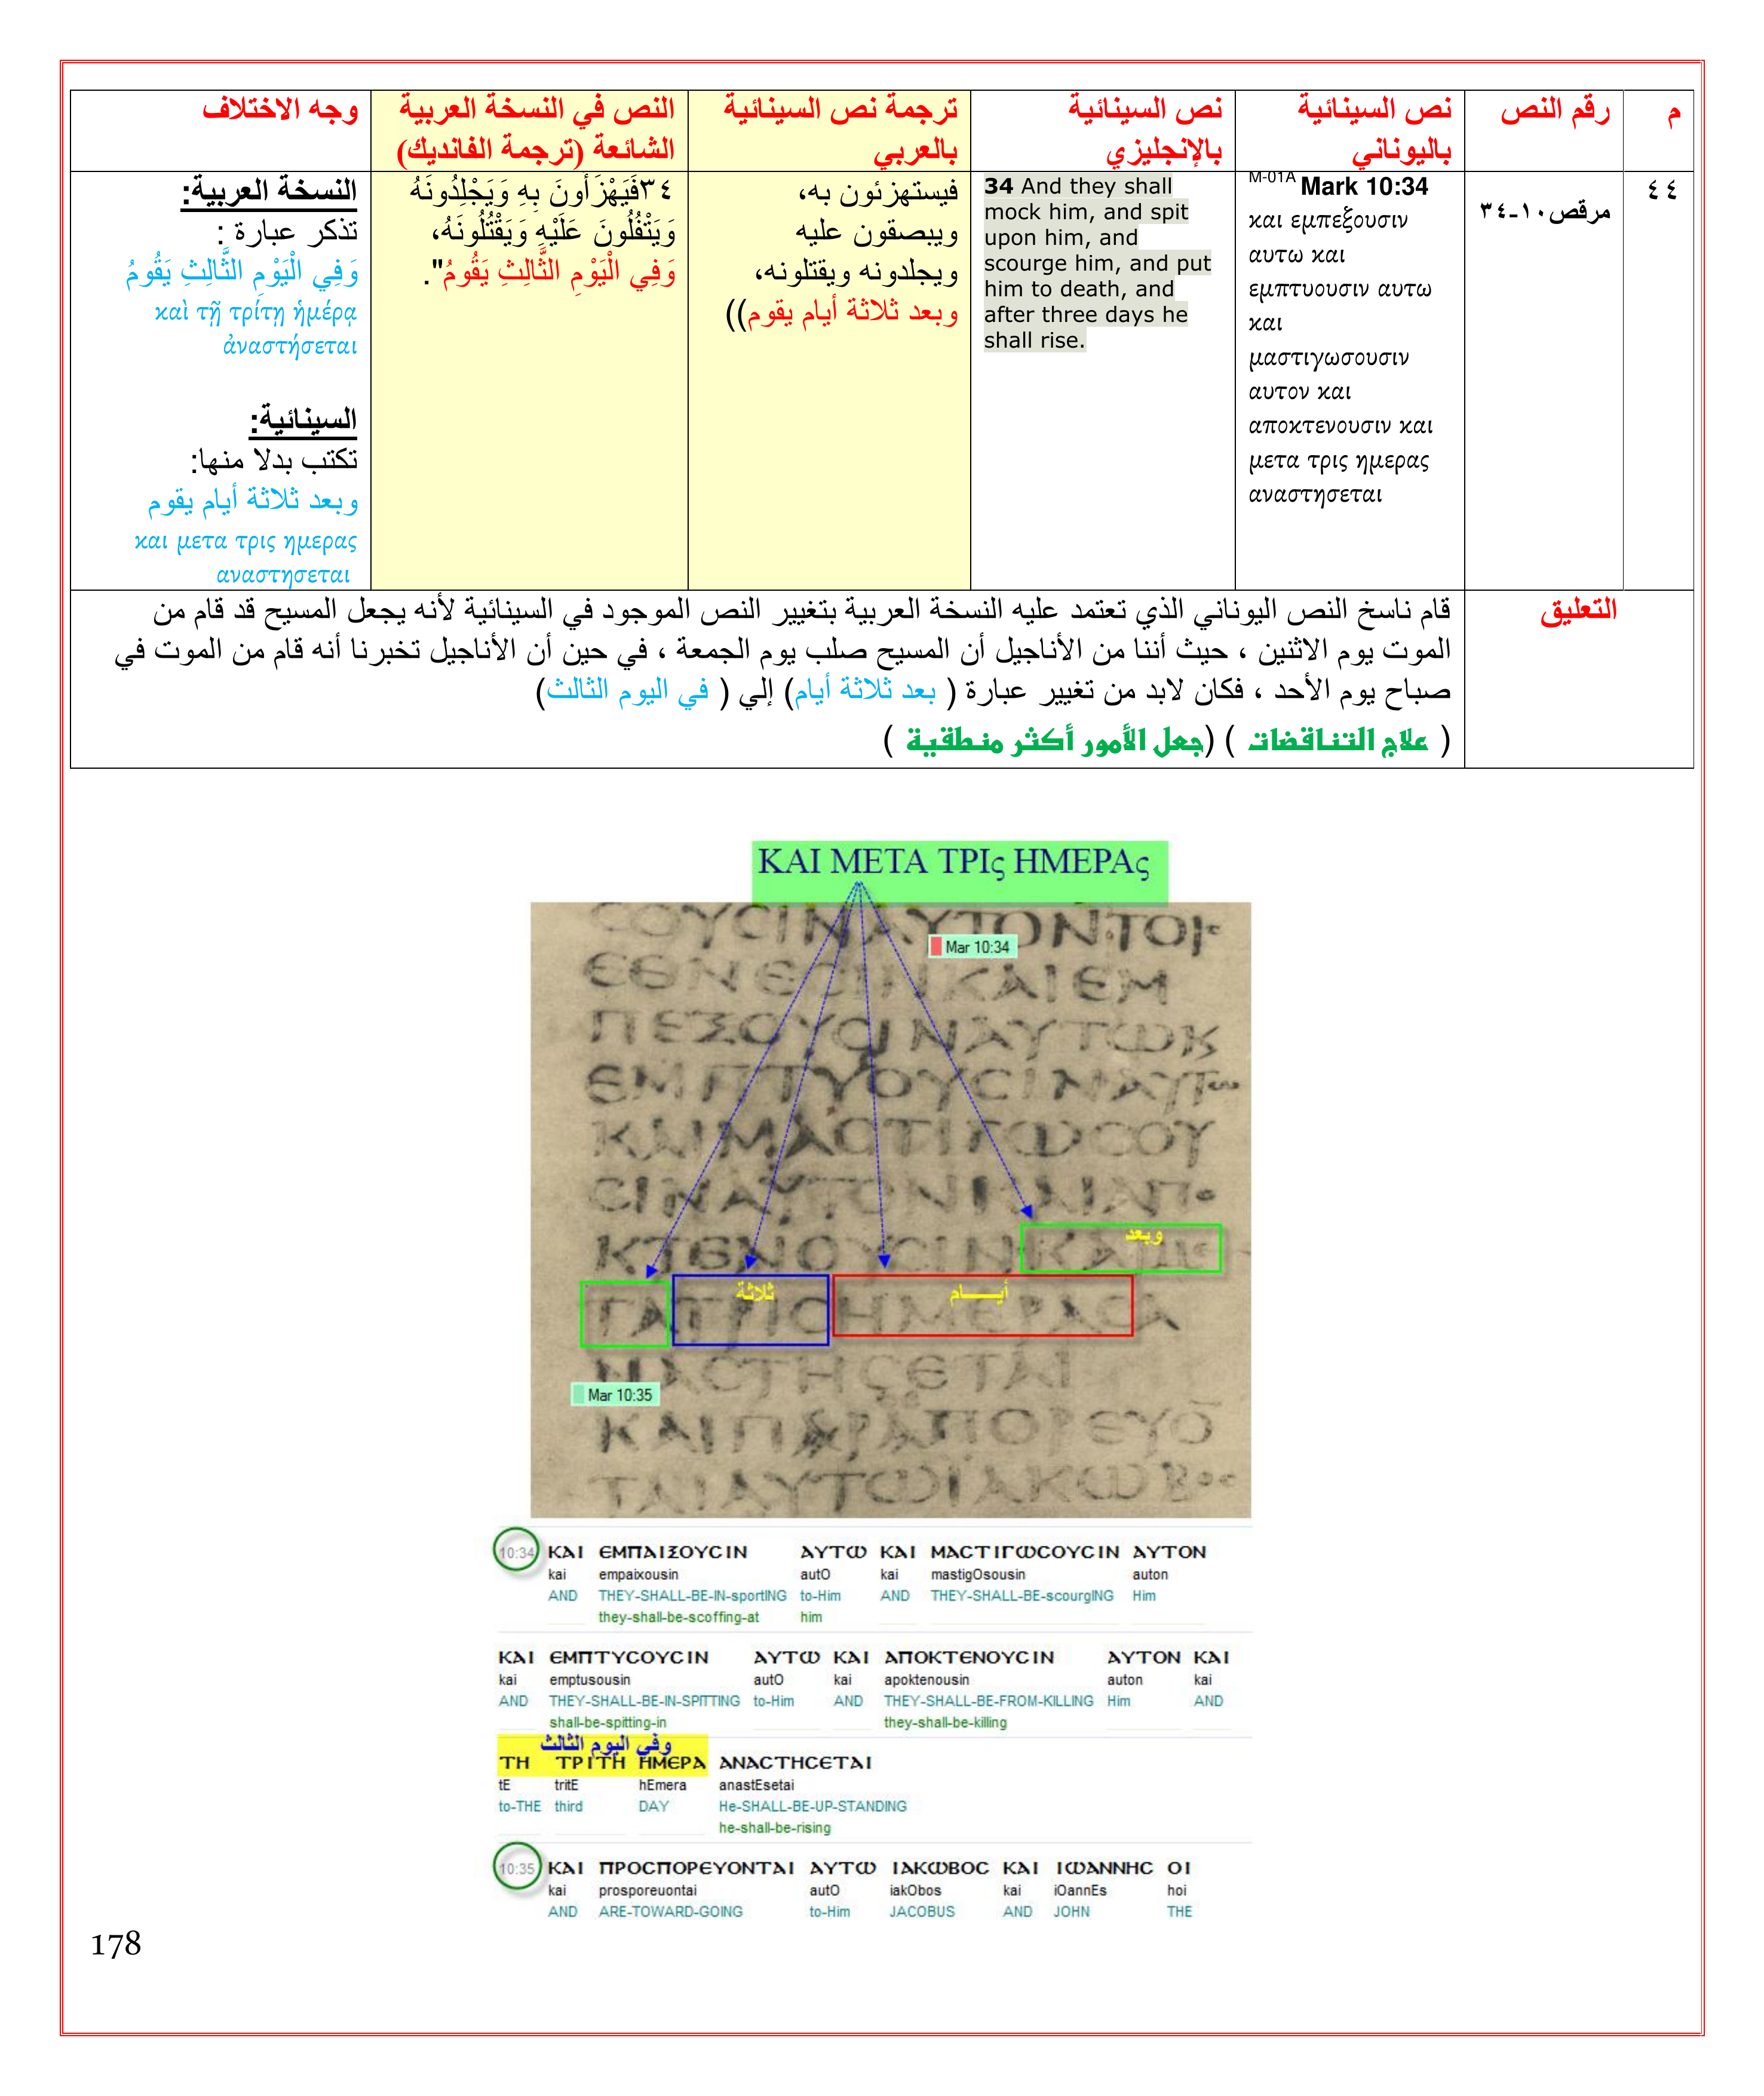 م
رقم النص
نص السينائية
باليوناني
نص السينائية
بالإنجليزي
ترجمة نص السينائية
بالعربي
النص في النسخة العربية
الشائعة (ترجمة الفانديك)
وجه الاختلاف
٤٤
مرقص١٠-٣٤
M-01A Mark 10:34
και εμπεξουσιν
αυτω και
εμπτυουσιν αυτω
και
μαστιγωσουσιν
αυτον και
αποκτενουσιν και
μετα τρις ημερας
αναστησεται
34 And they shall
mock him, and spit
upon him, and
scourge him, and put
him to death, and
after three days he
shall rise.
فيستهزئون به،
ويبصقون عليه
ويجلدونه ويقتلونه،
وبعد ثلاثة أيام يقوم))
٣٤فَيَهْزَأُونَ بِهِ وَيَجْلِدُونَهُ
وَيَتْفُلُونَ عَلَيْهِ وَيَقْتُلُونَهُ،
وَفِي الْيَوْمِ الثَّالِثِ يَقُومُ".
النسخة العربية:
تذكر عبارة :
وَفِي الْيَوْمِ الثَّالِثِ يَقُومُ
καὶ τῇ τρίτῃ ἡμέρᾳ
ἀναστήσεται
السينائية:
تكتب بدلا منها:
وبعد ثلاثة أيام يقوم
και μετα τρις ημερας
αναστησεται
التعليق
قام ناسخ النص اليوناني الذي تعتمد عليه النسخة العربية بتغيير النص الموجود في السينائية لأنه يجعل المسيح قد قام من
الموت يوم الاثنين ، حيث أننا من الأناجيل أن المسيح صلب يوم الجمعة ، في حين أن الأناجيل تخبرنا أنه قام من الموت في
صباح يوم الأحد ، فكان لابد من تغيير عبارة ( بعد ثلاثة أيام) إلي ( في اليوم الثالث)
( علاج التناقضات ) (جعل الأمور أكثر منطقية )
ΚΑΙ ΜΕΤΑ ΤΡΙς ΗΜΕΡΑς
ϹΟΥϹΙΝΑΥΤΟΝΤΟΙϹ
Mar 10:34
ΕΘΝΕϹΙΝΚΑΙΕΜ
ΠΕΞΟΥϹΙΝΑΥΤΩΚ
ΕΜΠΤΥΟΥϹΙΝΑΥΤω
ΚΑΙΜΑϹΤΙΓΩϹΟΥ
ϹΙΝΑΥΤΟΝΚΑΙΑΠο
وبعد
ΚΤΕΝΟΥϹΙΝΚΑΙΜΕ
ثلاثة
أيـــام
ΤΑΤΡΙϹΗΜΕΡΑϹΑ
ΝΑϹΤΗϹΕΤΑΙ
Mar 10:35
ΚΑΙΠΑΡΑΠΟΡΕΥΟ̅
ΤΑΙΑΥΤΩΙΑΚΩΒος
10:34 ΚΑΙ ΕΜΠΑΙΞΟΥϹΙΝ ΑΥΤΩ ΚΑΙ ΜΑϹΤΙΓΩϹΟΥϹΙΝ ΑΥΤΟΝ
kai empaixousin autO kai mastigOsousin auton
AND THEY-SHALL-BE-IN-sportING to-Him AND THEY-SHALL-BE-scourgING Him
they-shall-be-scoffing-at him
ΚΑΙ ΕΜΠΤΥϹΟΥϹΙΝ ΑΥΤΩ ΚΑΙ ΑΠΟΚΤΕΝΟΥϹΙΝ ΑΥΤΟΝ ΚΑΙ
kai emptusousin autO kai apoktenousin auton kai
AND THEY-SHALL-BE-IN-SPITTING to-Him AND THEY-SHALL-BE-FROM-KILLING Him AND
shall-be-spitting-in they-shall-be-killing
وفي اليوم الثالث
ΤΗ ΤΡΙΤΗ ΗΜΕΡΑ ΑΝΑϹΤΗϹΕΤΑΙ
tE tritE hEmera anastEsetai
to-THE third DAY He-SHALL-BE-UP-STANDING
he-shall-be-rising
10:35 ΚΑΙ ΠΡΟϹΠΟΡΕΥΟΝΤΑΙ ΑΥΤΩ ΙΑΚΩΒΟϹ ΚΑΙ ΙΩΑΝΝΗϹ ΟΙ
kai prosporeuontai autO iakObos kai iOannEs hoi
AND ARE-TOWARD-GOING to-Him JACOBUS AND JOHN THE
178